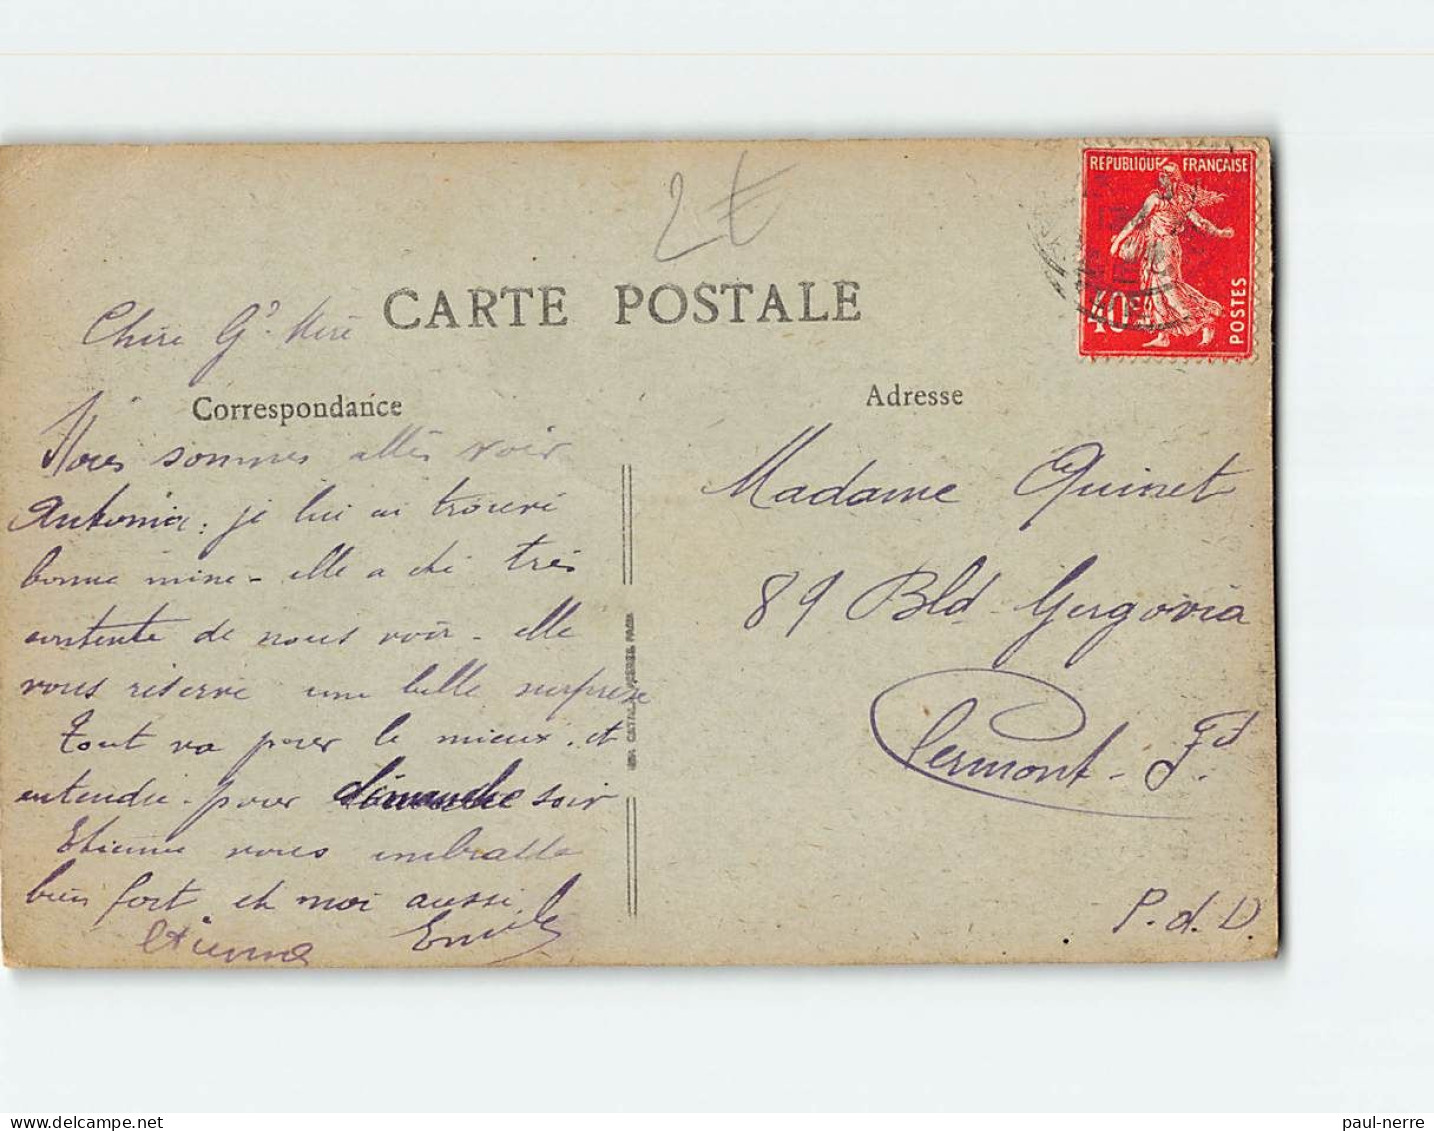 2€
REPUBLIQUE FRANÇAISE
40c
POSTES
CARTE POSTALE
Chère Gd. Mère
Correspondance
Adresse
Nous sommes allés voir
Antonia. je lui ai trouvé
bonne mine - elle a été très
contente de nous voir - elle
vous réserve une belle surprise
Tout va pour le mieux. et
entendu - pour dimanche soir
Etienne vous embrasse
bien fort et moi aussi.
Etienne Emile
Madame Quinet
89 Bld Gergovia
Clermont-Fd.
P.d.D.
paul-nerre
delcampe.net